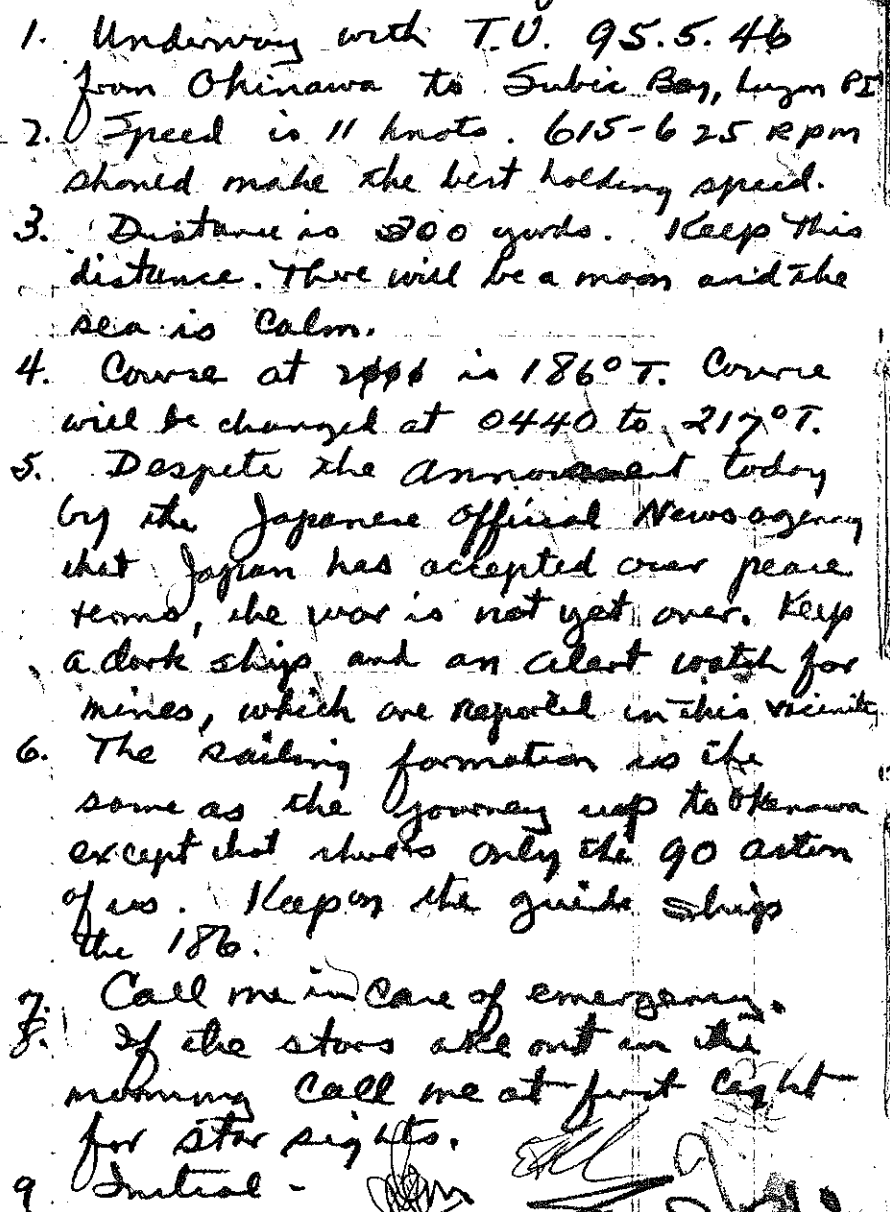 1. Underway with T.U. 95.5.46
from Okinawa to Subic Bay, Luzon PI
2. Speed is 11 knots. 615-625 RPM
should make the best holding speed.
3. Distance is 300 yards. Keep this
distance. There will be a moon and the
sea is calm.
4. Course at 2000 is 186° T. Course
will be changed at 0440 to 217° T.
5. Despite the today
by the Japanese Official News agency
that Japan has accepted our peace
terms, the war is not yet over. Keep
a dark ship and an alert watch for
mines, which are reported in this vicinity
6. The sailing formation is the
same as the journey up to Okinawa
except that there is only the 90 astern
of us. Keep on the guide ship
the 186.
7. Call me in case of emergency.
8. If the stars are out in the
morning call me at first light
for star sights.
9 Initial -